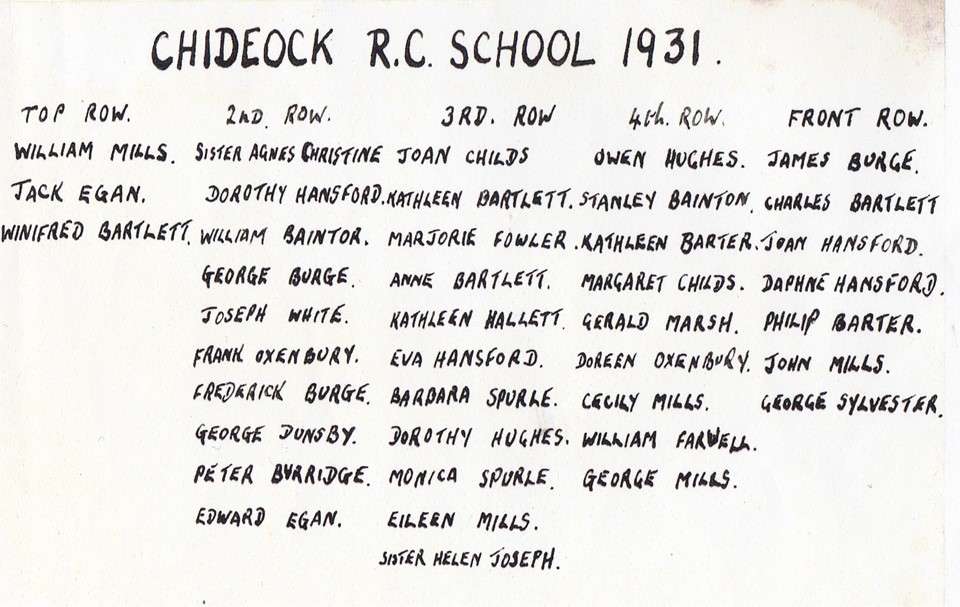 CHIDEOCK R.C. SCHOOL 1931.
TOP ROW. 2ND. ROW. 3RD. ROW 4th. ROW. FRONT ROW.
WILLIAM MILLS. SISTER AGNES CHRISTINE JOAN CHILDS OWEN HUGHES. JAMES BURGE.
JACK EGAN. DOROTHY HANSFORD. KATHLEEN BARTLETT. STANLEY BAINTON. CHARLES BARTLETT
WINIFRED BARTLETT. WILLIAM BAINTOR. MARJORIE FOWLER. KATHLEEN BARTER. JOAN HANSFORD.
GEORGE BURGE. ANNE BARTLETT. MARGARET CHILDS. DAPHNE HANSFORD.
JOSEPH WHITE. KATHLEEN HALLETT. GERALD MARSH. PHILIP BARTER.
FRANK OXENBURY. EVA HANSFORD. DOREEN OXENBURY. JOHN MILLS.
FREDERICK BURGE. BARBARA SPURLE. CECILY MILLS. GEORGE SYLVESTER.
GEORGE DUNSBY. DOROTHY HUGHES. WILLIAM FARWELL.
PETER BURRIDGE. MONICA SPURLE. GEORGE MILLS.
EDWARD EGAN. EILEEN MILLS.
SISTER HELEN JOSEPH.